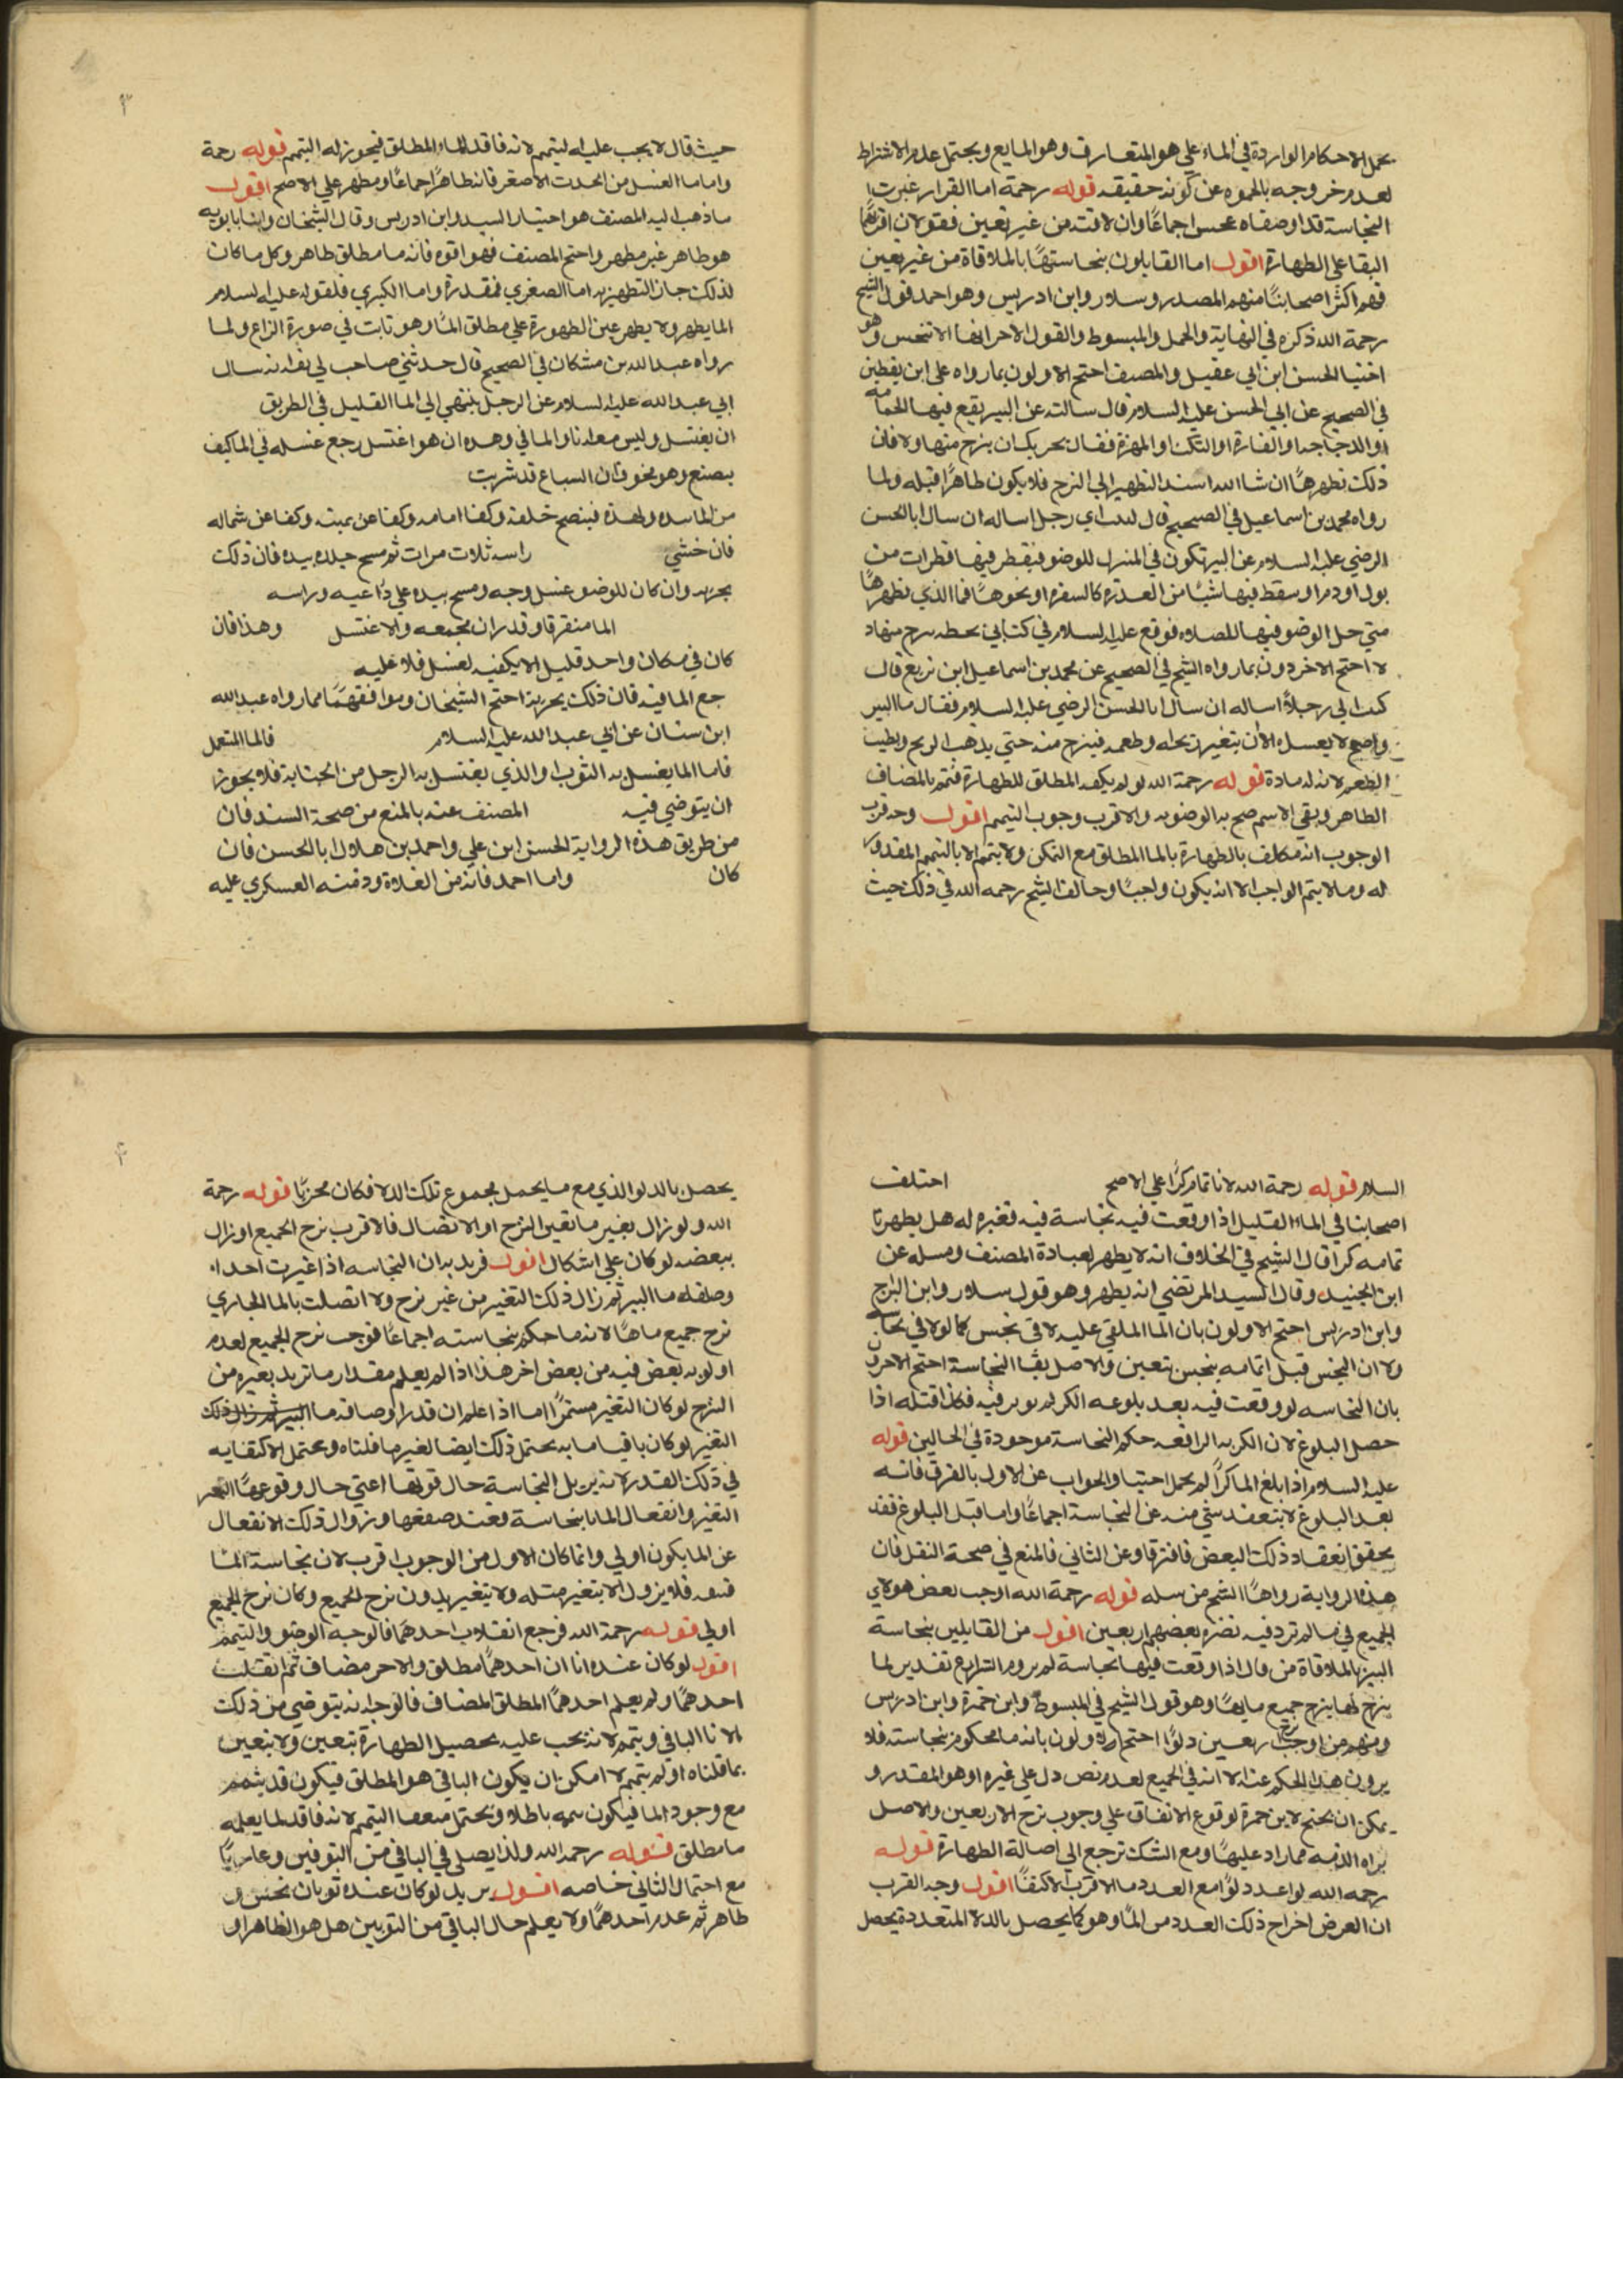 يحمل الاحكام الواردة في الماء علي هو المتعارف وهو المايع ويحتمل عدم الاشتراط
لعدم خروجه بالجموه عن كونه حقيقه قوله رحمة اما القرار غيرت
النجاسة قد اوصفاه نجس اجماعًا وان لاقته من غير تعين فقولان اقربهما
البقا علي الطهارة اقول اما القايلون بنجاستها بالملاقاة من غير تعين
فهم اكثر اصحابنا منهم المصدر وسلار وابن ادريس وهو احد قول الشيخ
رحمة الله ذكره في النهاية والجمل والمبسوط والقول الاخر انها لا تنجس وهو
اختيا الحسن ابن ابي عقيل والمصنف احتج الاولون بما رواه علي ابن يقطين
في الصحيح عن ابي الحسن عليه السلام قال سالته عن البير يقع فيها الحمامه
او الدجاجه او الفارة او الكلب او الهرة فقال يجزيك ان ينزح منها دلا فان
ذلك تطهرها ان شا الله اسند التطهير الي النزح فلا يكون طاهرًا قبله ولما
رواه محمد بن اسماعيل في الصحيح قال كتبت اي رجل اساله ان سال ابا الحسن
الرضي عليه السلام عن البير تكون في المنزل للوضو فيقطر فيها قطرات من
بول او دم او سقط فيها شيئًا من العذرة كالسفره او نحوها فما الذي يطهرها
متي حل الوضو فيها للصلاه فوقع عليه السلام في كتابي بخطه ينزح منها د
لا احتج الاخردون بما رواه الشيخ في الصحيح عن محمد بن اسماعيل ابن بزيع قال
كتبت الي رجلاً اساله ان سال ابا الحسن الرضي عليه السلام فقال ما البير
واسع لا يفسده الا ان يتغير ريحه او طعمه فينزح منه حتي يذهب الريح ويطيب
الطعم لانه له مادة قوله رحمة الله لو لم يكف المطلق للطهارة فتمم بالمضاف
الطاهر وبقي الاسم صح به الوضو به والاقرب وجوب التيمم اقول وجه قرب
الوجوب انه مكلف بالطهارة بالما المطلق مع التمكن ولا يتم الا بالتيمم المقدور
له وما لا يتم الواجب الا انه يكون واجبًا وخالف الشيخ رحمه الله في ذلك حيث
حيث قال لا يجب عليه ليتمم لانه فاقد للماء المطلق فيجوز له التيمم قوله رحمة
واما ما الغسل من الحدث الاصغر فانه طاهرًا اجماعًا ومطهر علي الاصح اقول
ما ذهب اليه المصنف هو اختيار السيد وابن ادريس وقال الشيخان وابنا بابويه
هو طاهر غير مطهر واحتج المصنف فهو اقوه فانه ما مطلق طاهر وكل ما كان
لذلك جاز التطهير به اما الصغري فمقدرة واما الكبري فلقوله عليه السلام
الما يطهر ولا يطهر عين الطهورة علي مطلق الما وهو ثابت في صورة النزاع ولما
رواه عبد الله بن مشكان في الصحيح قال حدثني صاحب لي ثقه انه سال
ابي عبد الله عليه السلام عن الرجل ينتهي الي الما القليل في الطريق
ان يغتسل وليس معه انا والما في وهده ان هو اغتسل رجع غسله في الما كيف
يصنع وهو يخوف ان السباع قد شربت
من الما بيده ولهذة فينضح خلفه وكفا امامه وكفا عن يمينه وكفا عن شماله
فان خشي راسه ثلاث مرات ثم مسح جلده بيده فان ذلك
يجزيه وان كان للوضو غسل وجه ومسح بيده علي ذراعيه وراسه
الما منفرقا وقدر ان يجمعه والا اغتسل وهذا فان
كان في مكان واحد قليل لا يكفيه لغسل فلا عليه
جع الما فيه فان ذلك يجزيه احتج الشيخان وموافقهما مما رواه عبد الله
ابن سنان عن ابي عبد الله عليه السلام فالما المتعمل
فاما الما يغسل به الثوب او الذي يغتسل به الرجل من الجنابة فلا يجوز
ان يتوضي فيه المصنف عنه بالمنع من صحة السند فان
من طريق هذه الرواية الحسن ابن علي واحمد بن هلال ابا الحسن فان
كان واما احمد فانه من الغلاة وذمته العسكري عليه
السلام قوله رحمة الله لانا تمام كرًا علي الاصح احتلف
اصحابنا في الماء القليل اذا وقعت فيه نجاسة فيه فغيره له هل يطهر نا
تمامه كرا قال الشيخ في الخلاف انه لا يطهر لعبادة المصنف ومسله عن
ابن الجنيد وقال السيد المرتضي انه يطهر وهو قول سلار وابن البراج
وابن ادريس احتج الاولون بان الما الملقي عليه لاقي نجس كما لو لاقي نجاسه
ولا ان النجس قبل اتمامه ينجس بتعين والاصل بقا النجاسة احتج الاخرون
بان النجاسه لو وقعت فيه بعد بلوغه الكر لم يوثر فيه فكذا قبله اذا
حصل البلوغ لان الكريه الرافعه حكم النجاسة موجودة في الحالين قوله
عليه السلام اذا بلغ الما كرًا لم يحمل اخبثا والجواب عن الاول بالفرق فانه
بعد البلوغ لا ينعقد شي منه عن النجاسة اجماعًا واما قبل البلوغ فقد
يحقق انعقاد ذلك البعض فافترقا وعن الثاني فالمنع في صحة النقل فان
هذا الرواية رواها الشيخ من سله قوله رحمة الله اوجب بعض هولاي
الجميع في ما لم ترد فيه نصره بعضهم اربعين اقول من القايلين بنجاسة
البير بالملاقاة من قال اذا وقعت فيها نجاسة لم يرو الشرايع تقدير لما
ينزح لها ينزح جميع مايها وهو قول الشيخ في المبسوط وابن حمزة وابن ادريس
ومنهم من اوجب اربعين دلوًا احتج الاولون بانه ما محكوم بنجاسته فلا
يرون هذا الحكم عنه الا انه في الجميع لعدم نص دل علي غيره او هو المقدر و
يمكن ان يحتج لابن حمزة لوقوع الاتفاق علي وجوب نزح الاربعين والاصل
براه الذمه مما زاد عليها ومع الشك ترجع الي اصالة الطهارة قوله
رحمه الله لو اعد دلوًا مع العدد ما الاقرب الاكتفا اقول وجه القرب
ان الغرض اخراج ذلك العدد من الما وهو كما يحصل بالدلا المتعددة يحصل
يحصل بالدلو الذي مع ما يحمل مجموع تلك الدلا فكان مجزيًا قوله رحمة
الله ولو زال بغير ما تغير النزح او الاتصال فالاقرب نزح الجميع او زال
ببعضه لو كان علي اشكال اقول فريد به ان النجاسه اذا غيرت احد ا
وصفله ما البير ثم زال ذلك التغير من غير نزح ولا اتصلت بالما الجاري
نزح جميع ماها لانه ما حكم بنجاسته اجماعًا فوجب نزح الجميع لعدم
اولويه بعض فيه من بعض اخر هذا اذا لم يعلم مقدار ما تريد بغيره من
النزح لو كان التغير مستمرًا اما اذا علم ان قدر اوصافه ما
التغير لو كان باقيا ما به يحتمل ذلك ايضا لغير ما قلناه ويحتمل الاكتفا به
في ذلك القدر لانه يزيل النجاسة حال قوتها اعني حال وقوعها
التغير وانفعال الما بالنجاسة فعند ضعفها وزوال ذلك الانفعال
عن الما يكون اولي وانما كان الاول من الوجوب اقرب لان نجاسة الما
فلا يزول الا بتغير مثله ولا تتغير بدون نزح الجميع وكان نزح الجميع
اولي قوله رحمة الله فرجع انقلاب احدهما فالوجه الوضو والتيمم
اقول لو كان عنده انا ان احدهما مطلق والاخر مضاف ثم انقلب
احدهما ولم يعلم احدهما المطلق المضاف فالوجه انه يتوضي من ذلك
الانا الباقي ويتمم لانه يجب عليه تحصيل الطهارة بتعين ولا بتعين
بما قلناه او لم يتمم لا امكن ان يكون الباقي هو المطلق فيكون قد يتمم
مع وجود الما فيكون باطلا ويحتمل ضعفا التيمم لانه فاقد لما يعلمه
ما مطلق قوله رحمه الله ولذا يصلي في الباقي من الثوبين وعاريًا
مع احتمال الثاني خاصه اقول يريد لو كان عنده ثوبان نجس و
طاهر ثم عدم احدهما ولا يعلم حال الباقي من الثوبين هل هو الظاهر او